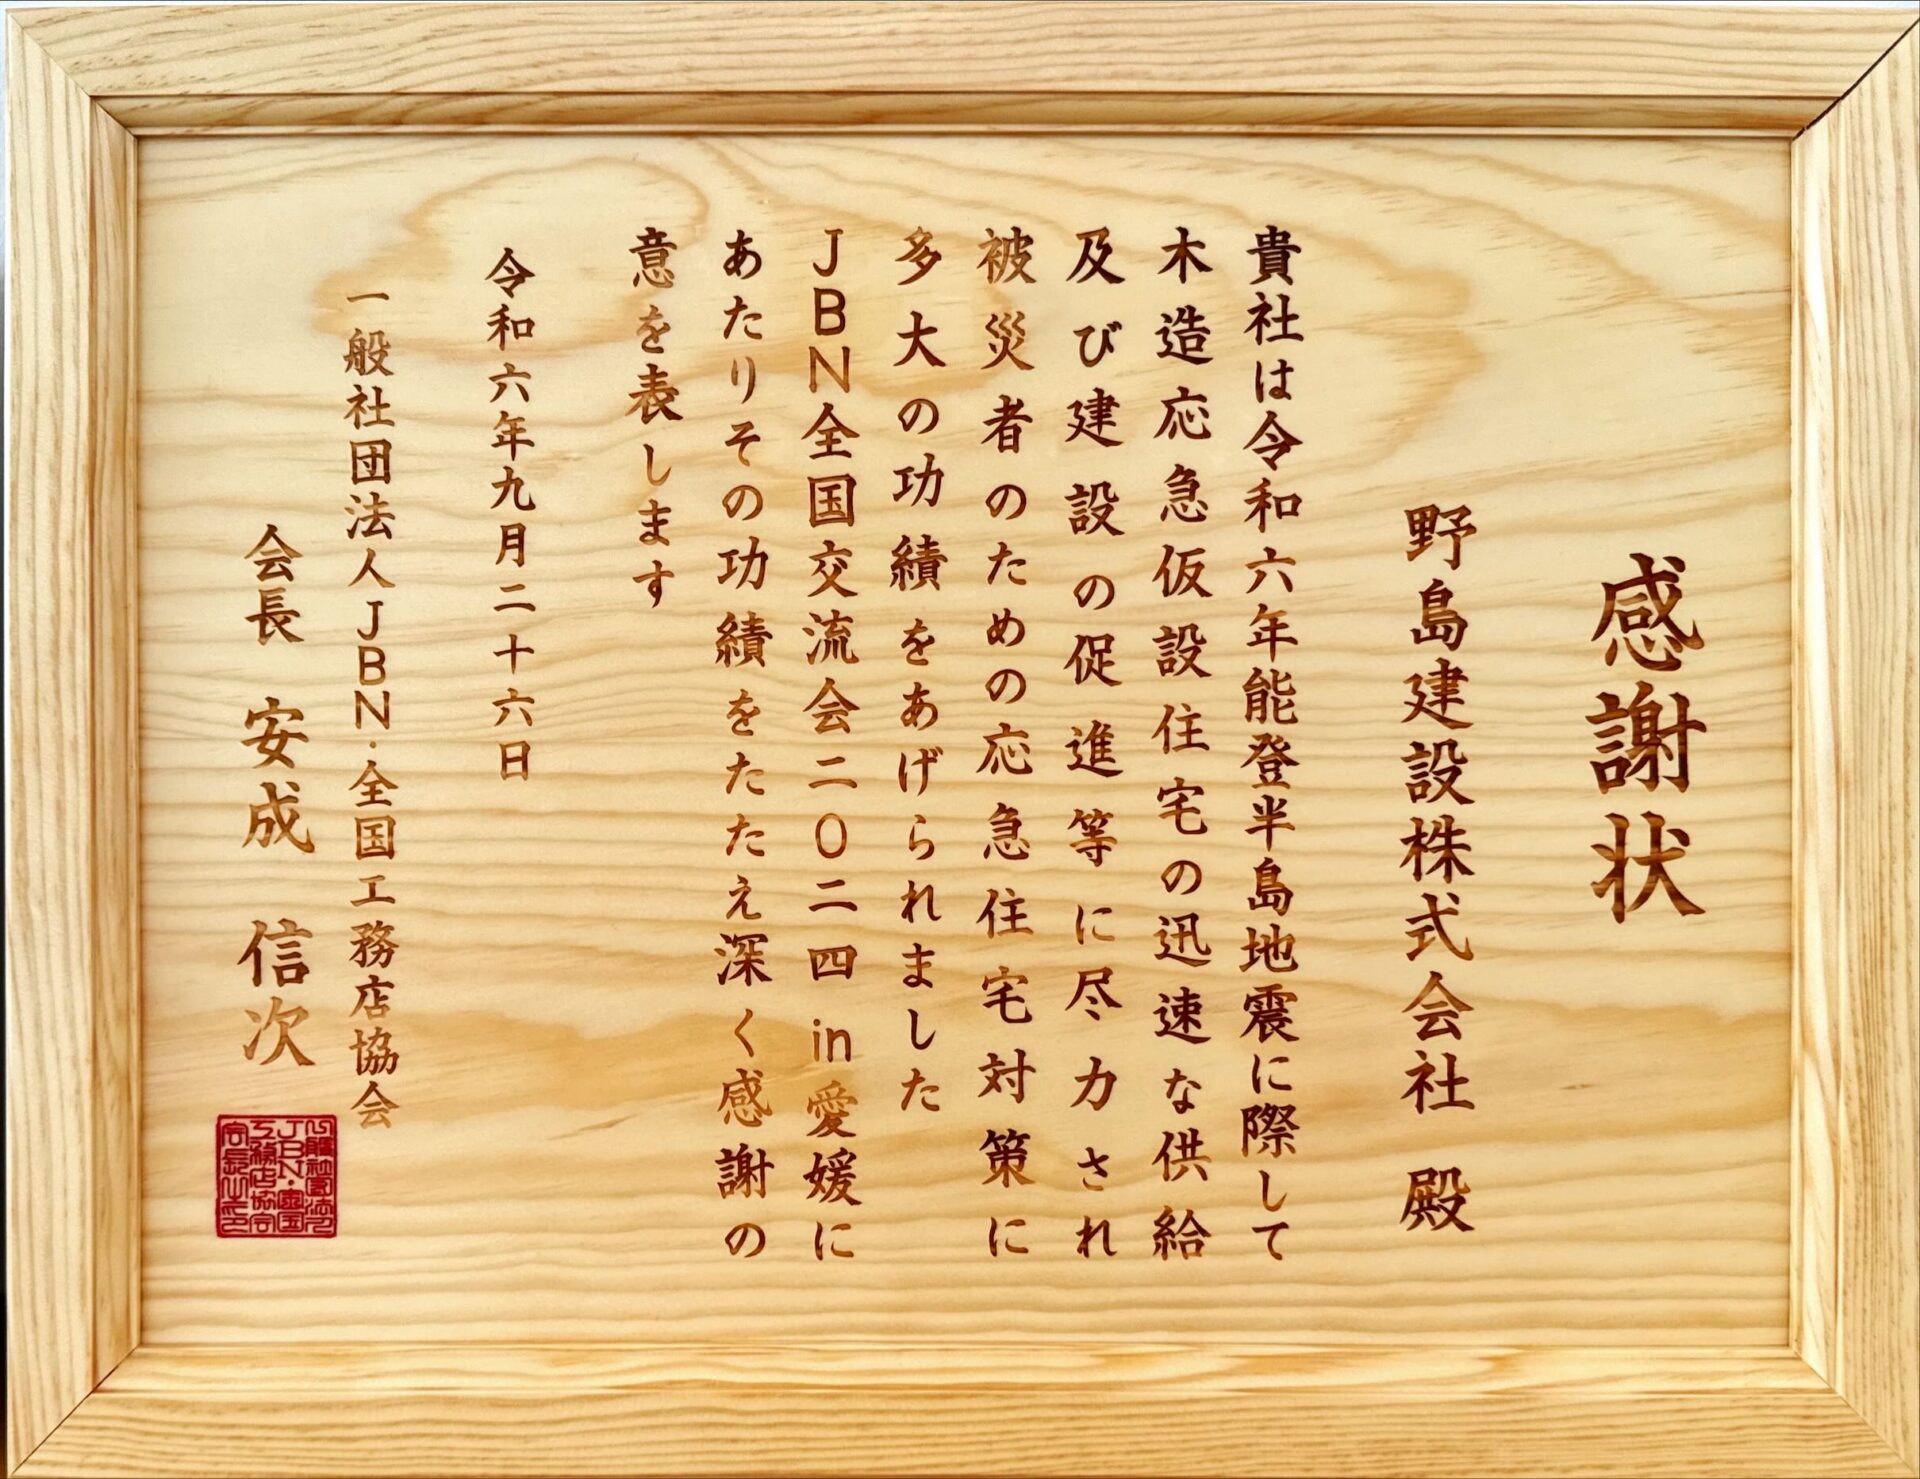 感謝状
野島建設株式会社 殿
貴社は令和六年能登半島地震に際して
木造応急仮設住宅の迅速な供給
及び建設の促進等に尽力され
被災者のための応急住宅対策に
多大の功績をあげられました
JBN全国交流会二〇二四in愛媛に
あたりその功績をたたえ深く感謝の
意を表します
令和六年九月二十六日
一般社団法人JBN・全国工務店協会
会長 安成 信次
一般社団法人
JBN・全国
工務店協会
会長之印